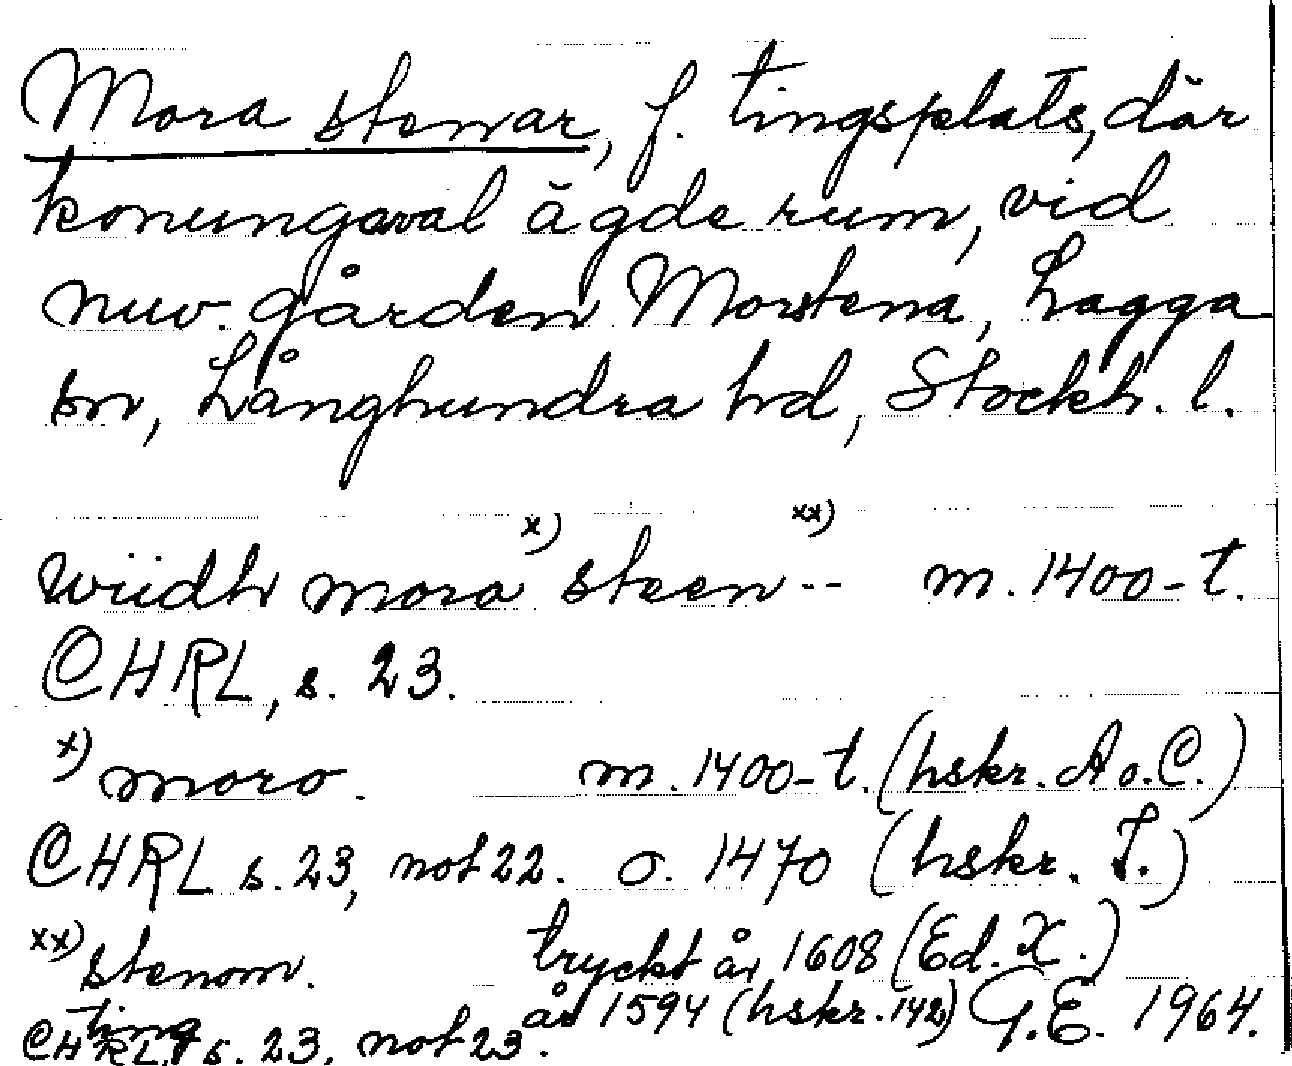 Mora stenar, f. tingsplats, där
konungaval ägde rum, vid
nuv. gården Morstena, Lagga
sn, Långhundra hd, Stockh. l.
wiidh mora x) steen -- xx) m. 1400-t.
CHRL, s. 23.
x) moro. m. 1400-t. (hskr. A o. C.)
CHRL s. 23, not 22. o. 1470 (hskr. I.)
xx) stenom. tryckt år 1608 (Ed. X.)
ting år 1594 (hskr. 142) G.E. 1964.
CHRL, s. 23, not 23.